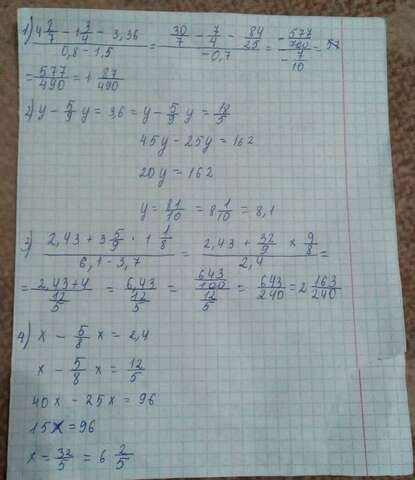 1) (4 2/7 - 1 3/4 - 3,36) / (0,8 - 1,5) = (30/7 - 7/4 - 84/25) / (-0,7) = (- 577/700) / (- 7/10) =
= 577/490 = 1 87/490
2) y - 5/9 y = 3,6 = y - 5/9 y = 18/5
45y - 25y = 162
20y = 162
y = 81/10 = 8 1/10 = 8,1
3) (2,43 + 3 5/9 · 1 1/8) / (6,1 - 3,7) = (2,43 + 32/9 × 9/8) / 2,4 =
= (2,43 + 4) / (12/5) = 6,43 / (12/5) = (643/100) / (12/5) = 643/240 = 2 163/240
4) x - 5/8 x = 2,4
x - 5/8 x = 12/5
40x - 25x = 96
15x = 96
x = 32/5 = 6 2/5